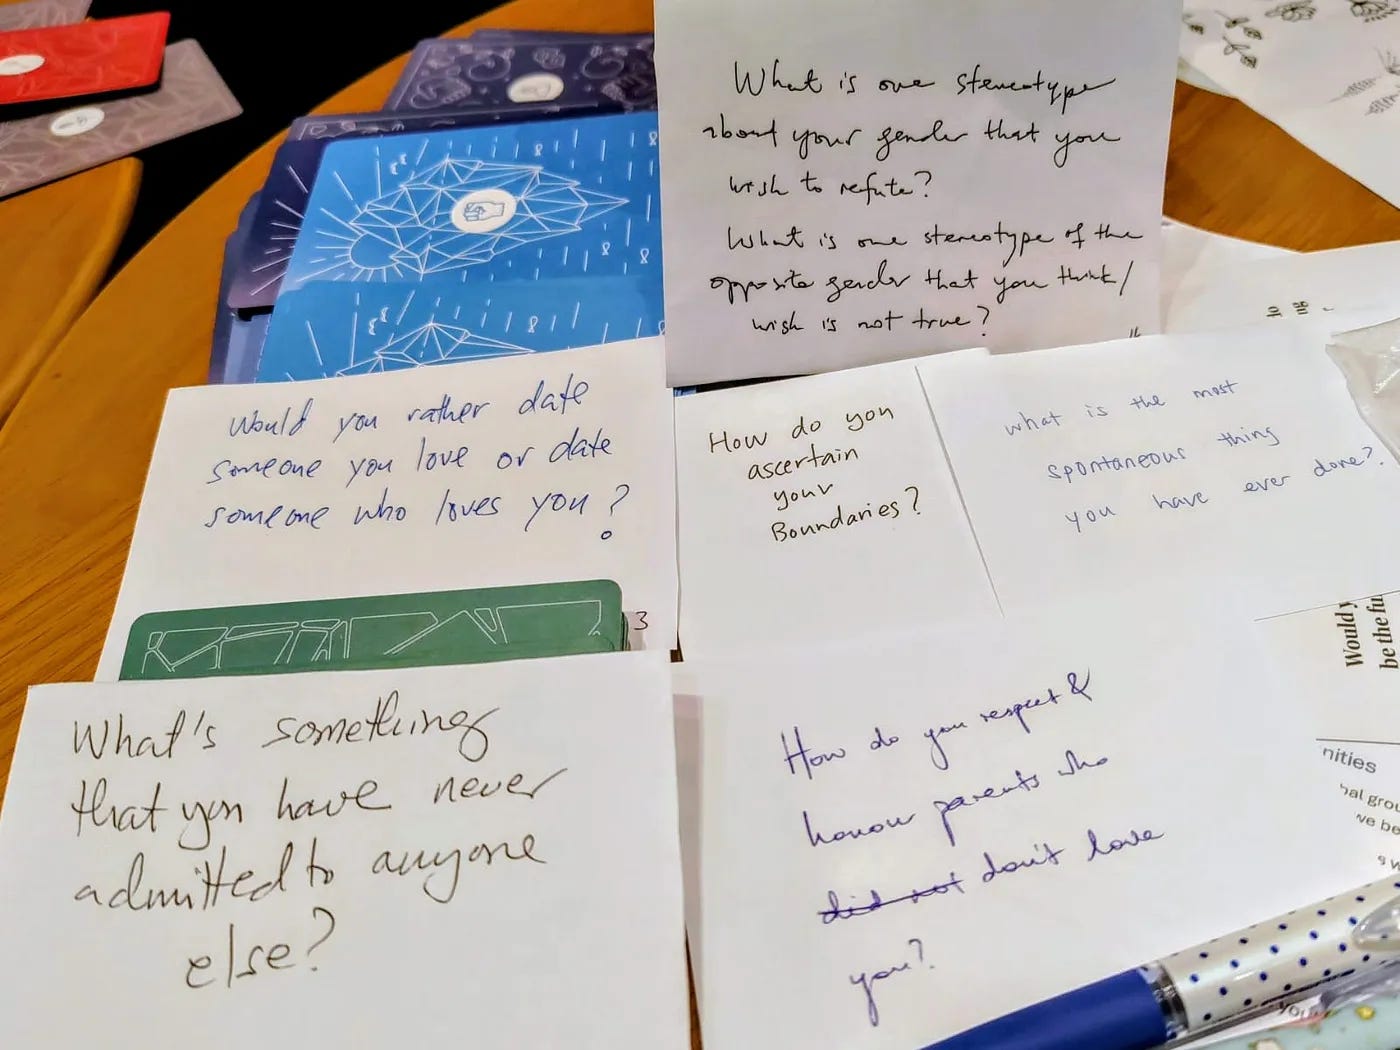 What is one stereotype
about your gender that you
wish to refute?
What is one stereotype of the
opposite gender that you think/
wish is not true?
Would you rather date
someone you love or date
someone who loves you?
3
How do you
ascertain
your
Boundaries?
what is the most
spontaneous thing
you have ever done?
What's something
that you have never
admitted to anyone
else?
How do you respect &
honour parents who
did not don't love
you?
Would y
be the fu
nities
nal grou
we be